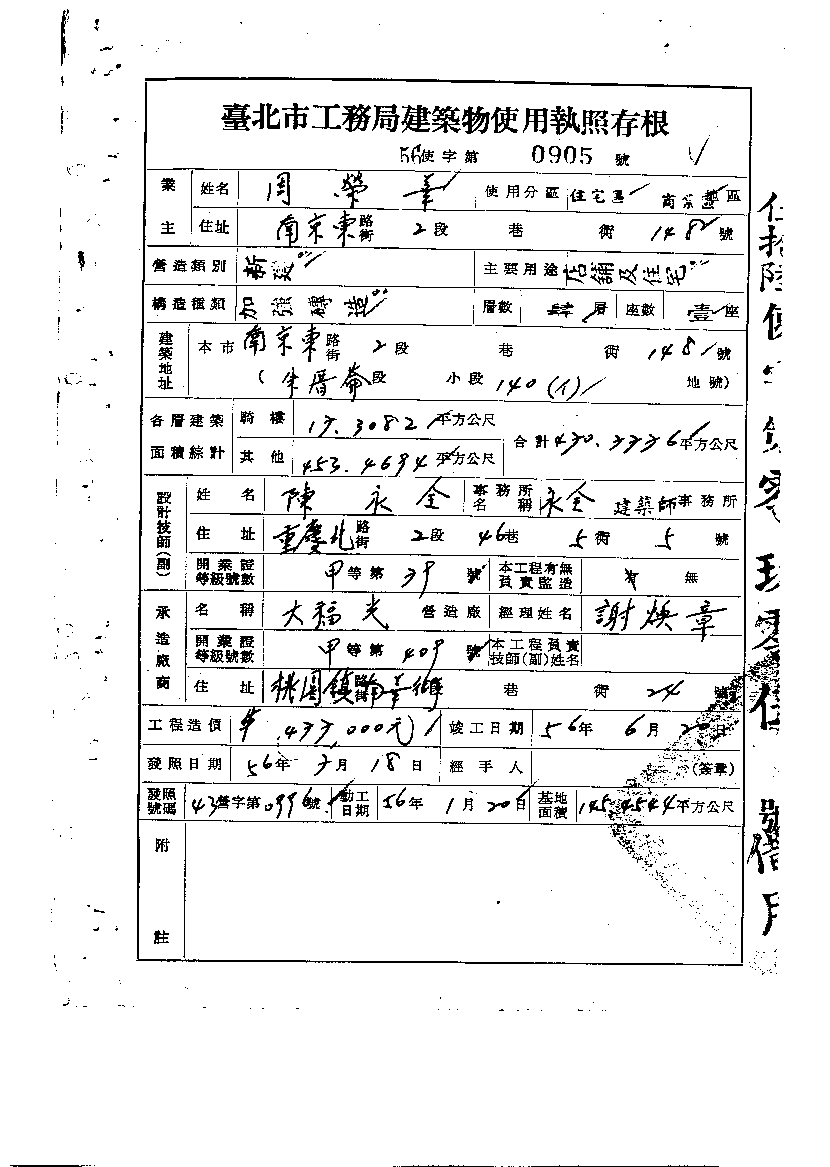 臺北市工務局建築物使用執照存根
56使字第 0905 號
業主 姓名 周榮華 使用分區 住宅區 商業區 地區
住址 南京東 路街 2段 巷 衖 148 號
營造類別 新建 主要用途 店舖及住宅
構造種類 加強磚造 層數 層 座數 壹座
建築地址 本市 南京東 路街 2段 巷 衖 148 號
(朱厝崙段 小段 140(1) 地號)
各層建築面積綜計 騎樓 平方公尺 合計 平方公尺
其他 453.4694 平方公尺
設計技師(副) 姓名 陳永全 事務所名稱 永全 建築師事務所
住址 重慶北 路街 2段 46巷 5衖 5號
開業證等級號數 甲等第39號 本工程有無負責監造 有 無
承造廠商 名稱 大福光 營造廠 經理姓名 謝煥章
開業證等級號數 甲等第409號 本工程負責技師(副)姓名
住址 桃園鎮 路街 巷 衖 24 號
工程造價 433,000元 竣工日期 56年 6月 20日
發照日期 56年 月 18日 經手人 (簽章)
發照號碼 43營字第0996號 動工日期 56年 1月 20日 基地面積 145.4544平方公尺
附註